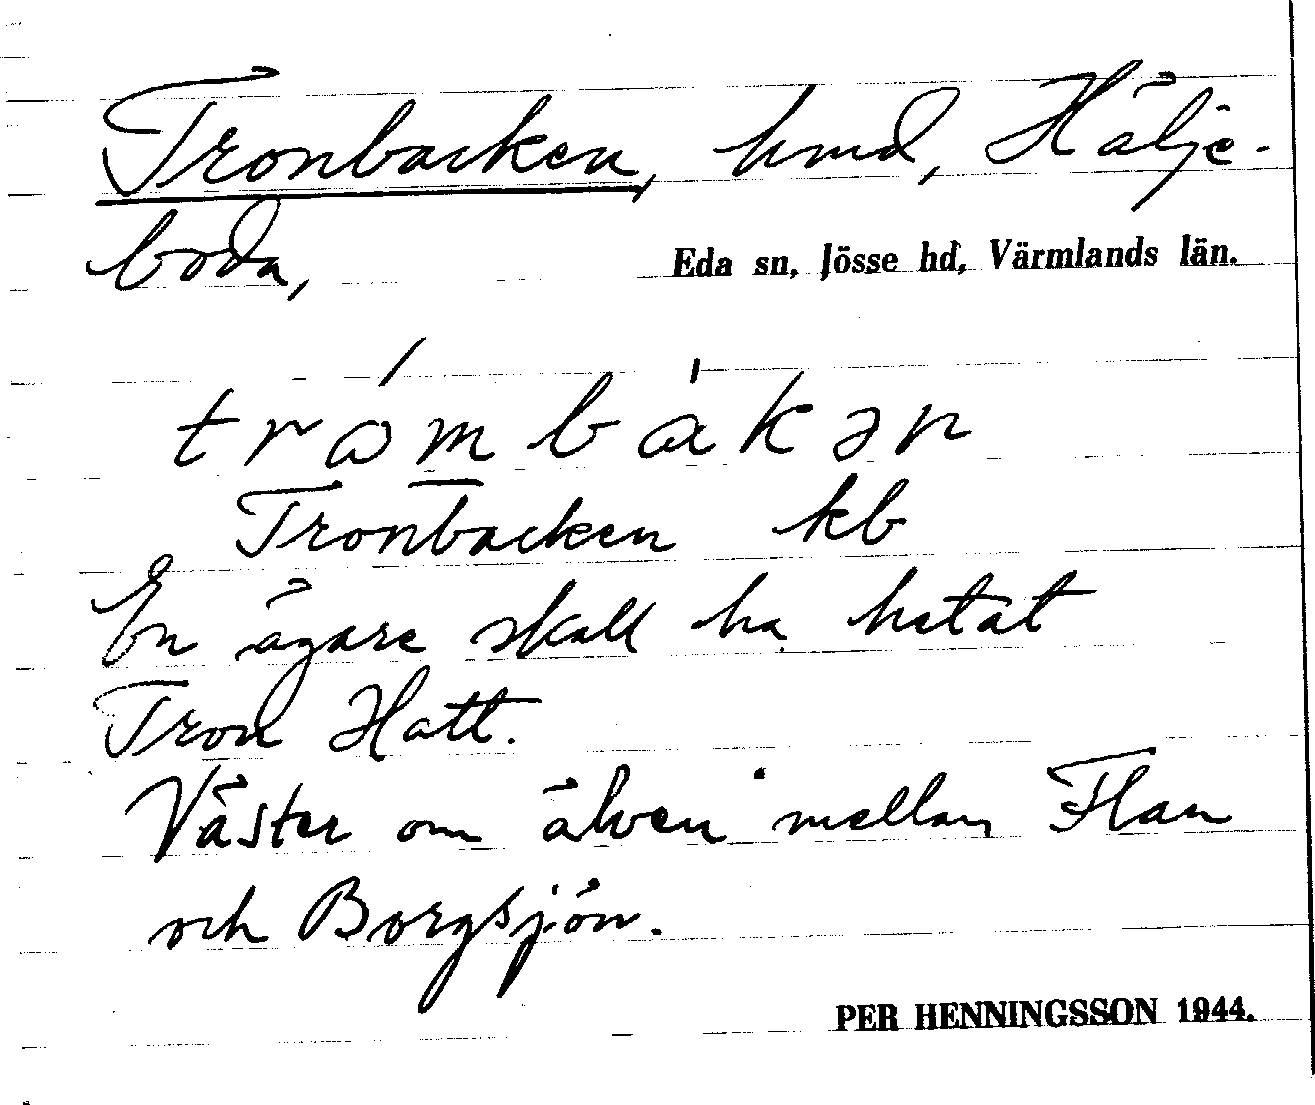 Tronbacken, hmd, Hälje-
boda, Eda sn, Jösse hd, Värmlands län.
tròmbàkən
Tronbacken kb
En ägare skall ha hetat
Tron Hatt.
Väster om älven mellan Flan
och Borgsjön.
PER HENNINGSSON 1944.